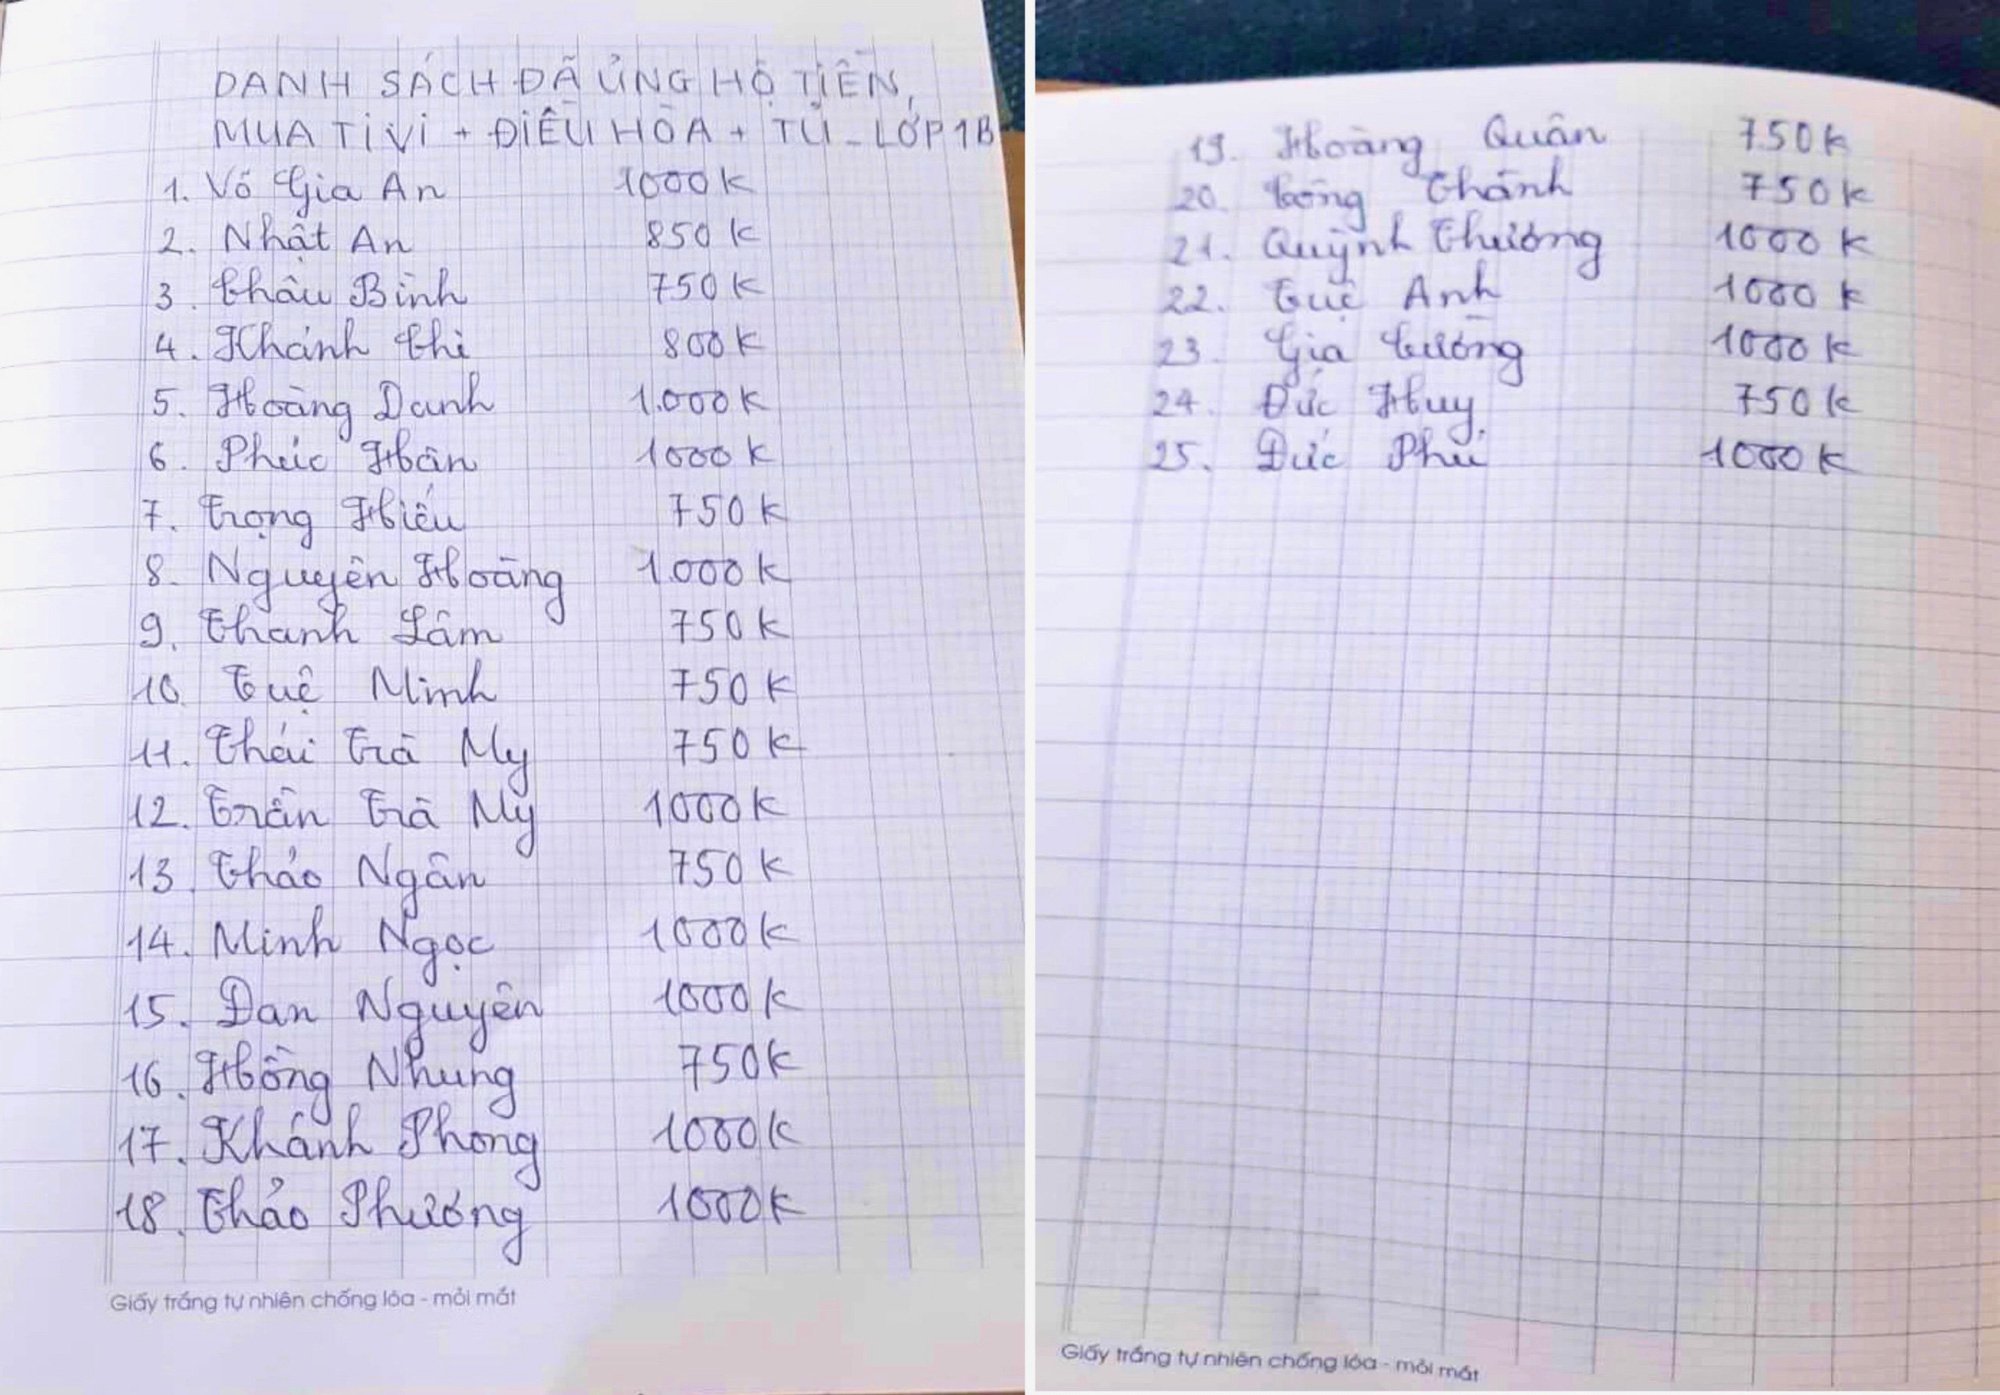 DANH SÁCH ĐÃ ỦNG HỘ TIỀN,
MUA TIVI + ĐIỀU HÒA + TỦ - LỚP 1B
1. Võ Gia An 1000K
2. Nhật An 850K
3. Châu Bình 750K
4. Khánh Chi 800K
5. Hoàng Danh 1.000K
6. Phúc Hân 1000K
7. Trọng Hiếu 750K
8. Nguyên Hoàng 1.000K
9. Thanh Lâm 750K
10. Tuệ Minh 750K
11. Thái Trà My 750K
12. Trần Trà My 1000K
13. Thảo Ngân 750K
14. Minh Ngọc 1000K
15. Đan Nguyên 1000K
16. Hồng Nhung 750K
17. Khánh Phong 1000K
18. Thảo Phương 1000K
Giấy trắng tự nhiên chống lóa - mỏi mắt
19. Hoàng Quân 750K
20. Thánh 750K
21. Quỳnh Thương 1000K
22. Tuệ Anh 1000K
23. Gia Tường 1000K
24. Đức Huy 750K
25. Đức Phú 1000K
Giấy trắng tự nhiên chống lóa - mỏi mắt